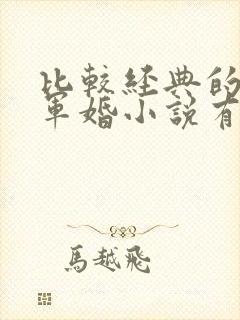 比較經典的
軍婚小說有
馬越飛